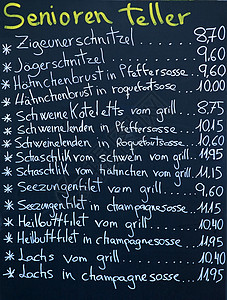 Senioren Teller
* Zigeunerschnitzel.......... 8,70
* Jägerschnitzel............. 9,60
* Hähnchenbrust in Pfeffersosse.. 9,60
* Hähnchenbrust in roquefotsose.. 10,00
* Schweine Koteletts vom grill... 8,75
* Schweinelenden in Pfeffersosse.. 10,15
* Schweinelenden in Roquefoutsosse.. 10,60
* Schaschlik vom schwein vom grill.. 11,95
* Schaschlik vom hähnchen vom grill.. 11,15
* Seezungenfilet vom grill.... 9,60
* Seezungenfilet in champagnesosse... 11,15
* Heilbuttfilet vom grill..... 10,40
* Heilbuttfilet in champagnesosse... 11,95
* Lachs vom grill............ 10,40
* Lachs in champagnesosse.... 11,95